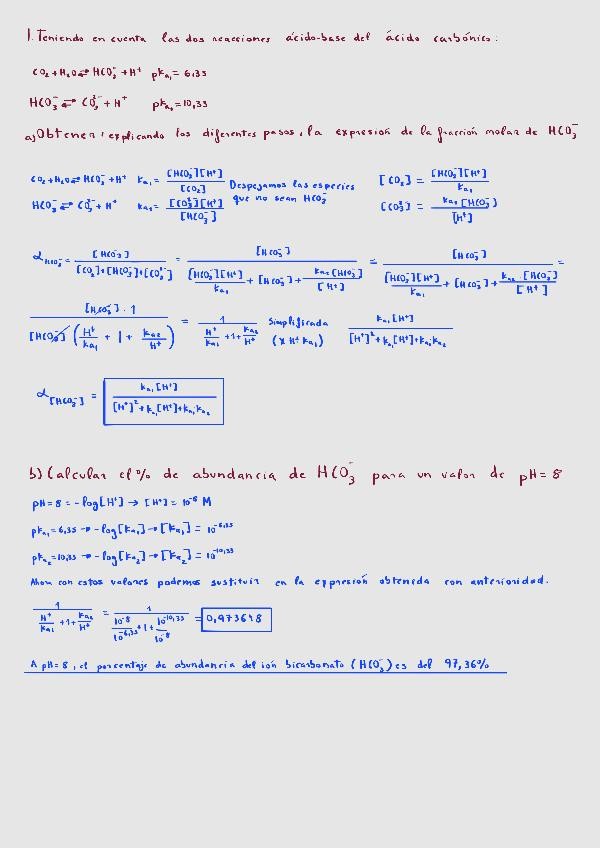 1. Teniendo en cuenta las dos reacciones ácido-base del ácido carbónico:
CO₂ + H₂O ⇄ HCO₃⁻ + H⁺ pKa₁ = 6,35
HCO₃⁻ ⇄ CO₃²⁻ + H⁺ pKa₂ = 10,33
a) Obtener, explicando los diferentes pasos, la expresión de la fracción molar de HCO₃⁻
CO₂ + H₂O ⇄ HCO₃⁻ + H⁺ Ka₁ = [HCO₃⁻][H⁺] / [CO₂] Despejamos las especies que no sean HCO₃⁻ [CO₂] = [HCO₃⁻][H⁺] / Ka₁
HCO₃⁻ ⇄ CO₃²⁻ + H⁺ Ka₂ = [CO₃²⁻][H⁺] / [HCO₃⁻] [CO₃²⁻] = Ka₂ [HCO₃⁻] / [H⁺]
α HCO₃⁻ = [HCO₃⁻] / ([CO₂]+[HCO₃⁻]+[CO₃²⁻]) = [HCO₃⁻] / ([HCO₃⁻][H⁺]/Ka₁ + [HCO₃⁻] + Ka₂[HCO₃⁻]/[H⁺]) = [HCO₃⁻] / ([HCO₃⁻][H⁺]/Ka₁ + [HCO₃⁻] + Ka₂·[HCO₃⁻]/[H⁺]) =
[HCO₃⁻]·1 / ([HCO₃⁻] (H⁺/Ka₁ + 1 + Ka₂/H⁺)) = 1 / (H⁺/Ka₁ + 1 + Ka₂/H⁺) Simplificada (x H⁺ Ka₁) Ka₁[H⁺] / ([H⁺]² + Ka₁[H⁺] + Ka₁Ka₂)
α [HCO₃⁻] = Ka₁[H⁺] / ([H⁺]² + Ka₁[H⁺] + Ka₁Ka₂)
b) Calcular el % de abundancia de HCO₃⁻ para un valor de pH = 8
pH = 8 = -log[H⁺] → [H⁺] = 10⁻⁸ M
pKa₁ = 6,35 → -log[Ka₁] → [Ka₁] = 10⁻⁶'³⁵
pKa₂ = 10,33 → -log[Ka₂] → [Ka₂] = 10⁻¹⁰'³³
Ahora con estos valores podemos sustituir en la expresión obtenida con anterioridad.
1 / (H⁺/Ka₁ + 1 + Ka₂/H⁺) = 1 / (10⁻⁸/10⁻⁶'³⁵ + 1 + 10⁻¹⁰'³³/10⁻⁸) = 0,973618
A pH = 8, el porcentaje de abundancia del ión bicarbonato (HCO₃⁻) es del 97,36%